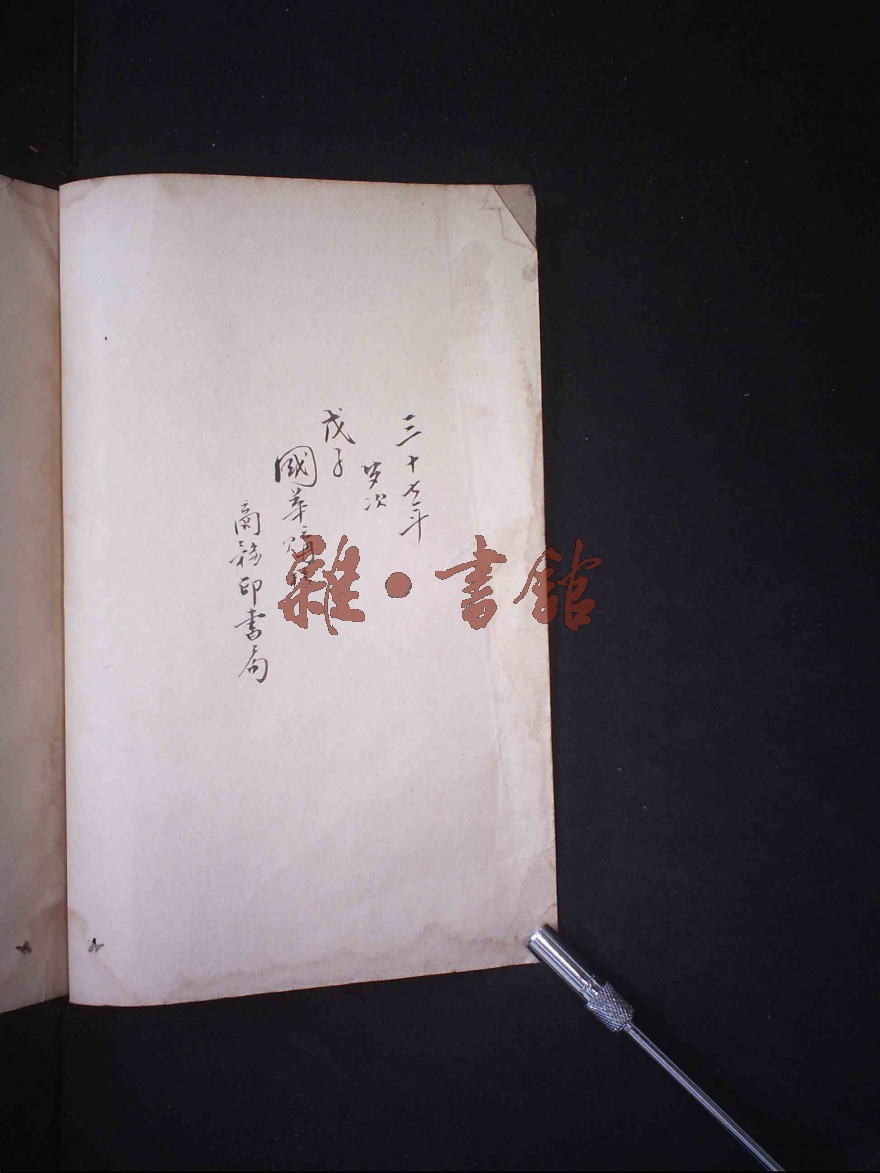 三十七年
岁次
戊子
國華購
商務印書局
雜·書館